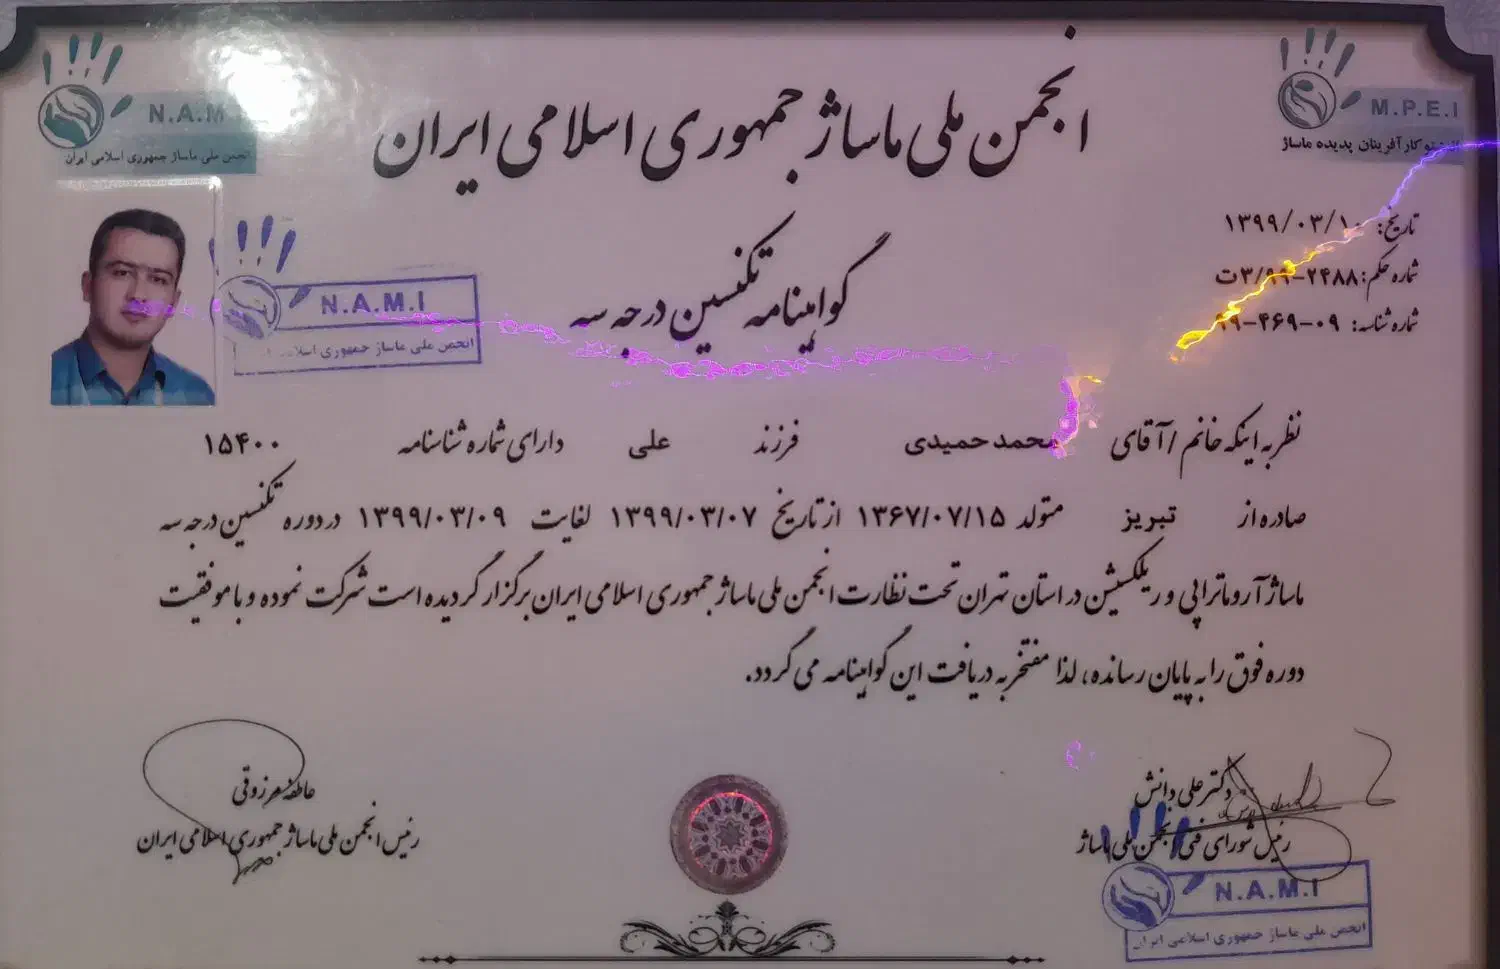 انجمن ملی ماساژ جمهوری اسلامی ایران
M.P.E.I
کارآفرینان پدیده ماساژ
N.A.M
انجمن ملی ماساژ جمهوری اسلامی ایران
تاریخ: ۱۳۹۹/۰۳/۱۰
شماره حکم: ۲۴۸۸-۳/۹۹ت
شماره شناسه: ۰۹-۴۶۹-۹۹
گواهینامه تکنسین درجه سه
N.A.M.I
انجمن ملی ماساژ جمهوری اسلامی ایران
نظر به اینکه خانم / آقای محمد حمیدی فرزند علی دارای شماره شناسنامه ۱۵۴۰۰
صادره از تبریز متولد ۱۳۶۷/۰۷/۱۵ از تاریخ ۱۳۹۹/۰۳/۰۷ لغایت ۱۳۹۹/۰۳/۰۹ در دوره تکنسین درجه سه
ماساژ آروماتراپی و ریلکسیشن در استان تهران تحت نظارت انجمن ملی ماساژ جمهوری اسلامی ایران برگزار گردیده است شرکت نموده و با موفقیت
دوره فوق را به پایان رسانده، لذا مفتخر به دریافت این گواهینامه می گردد.
دکتر علی دانش
رئیس شورای فنی انجمن ملی ماساژ
عاطفه مرزوقی
رئیس انجمن ملی ماساژ جمهوری اسلامی ایران
N.A.M.I
انجمن ملی ماساژ جمهوری اسلامی ایران